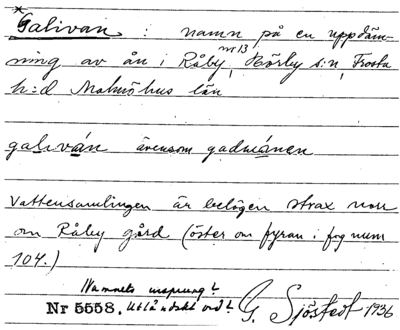 *Galivan : namn på en uppdäm-
ning av ån i Råby nr 13, Hörby s:n, Frosta
h:d Malmöhus län
galiván ävensom gadmánen
Vattensamlingen är belägen strax norr
om Råby gård (öster om fyran i fog num
104.)
Namnets ursprung?
Nr 5558. Utländskt ord? G. Sjöstedt 1936